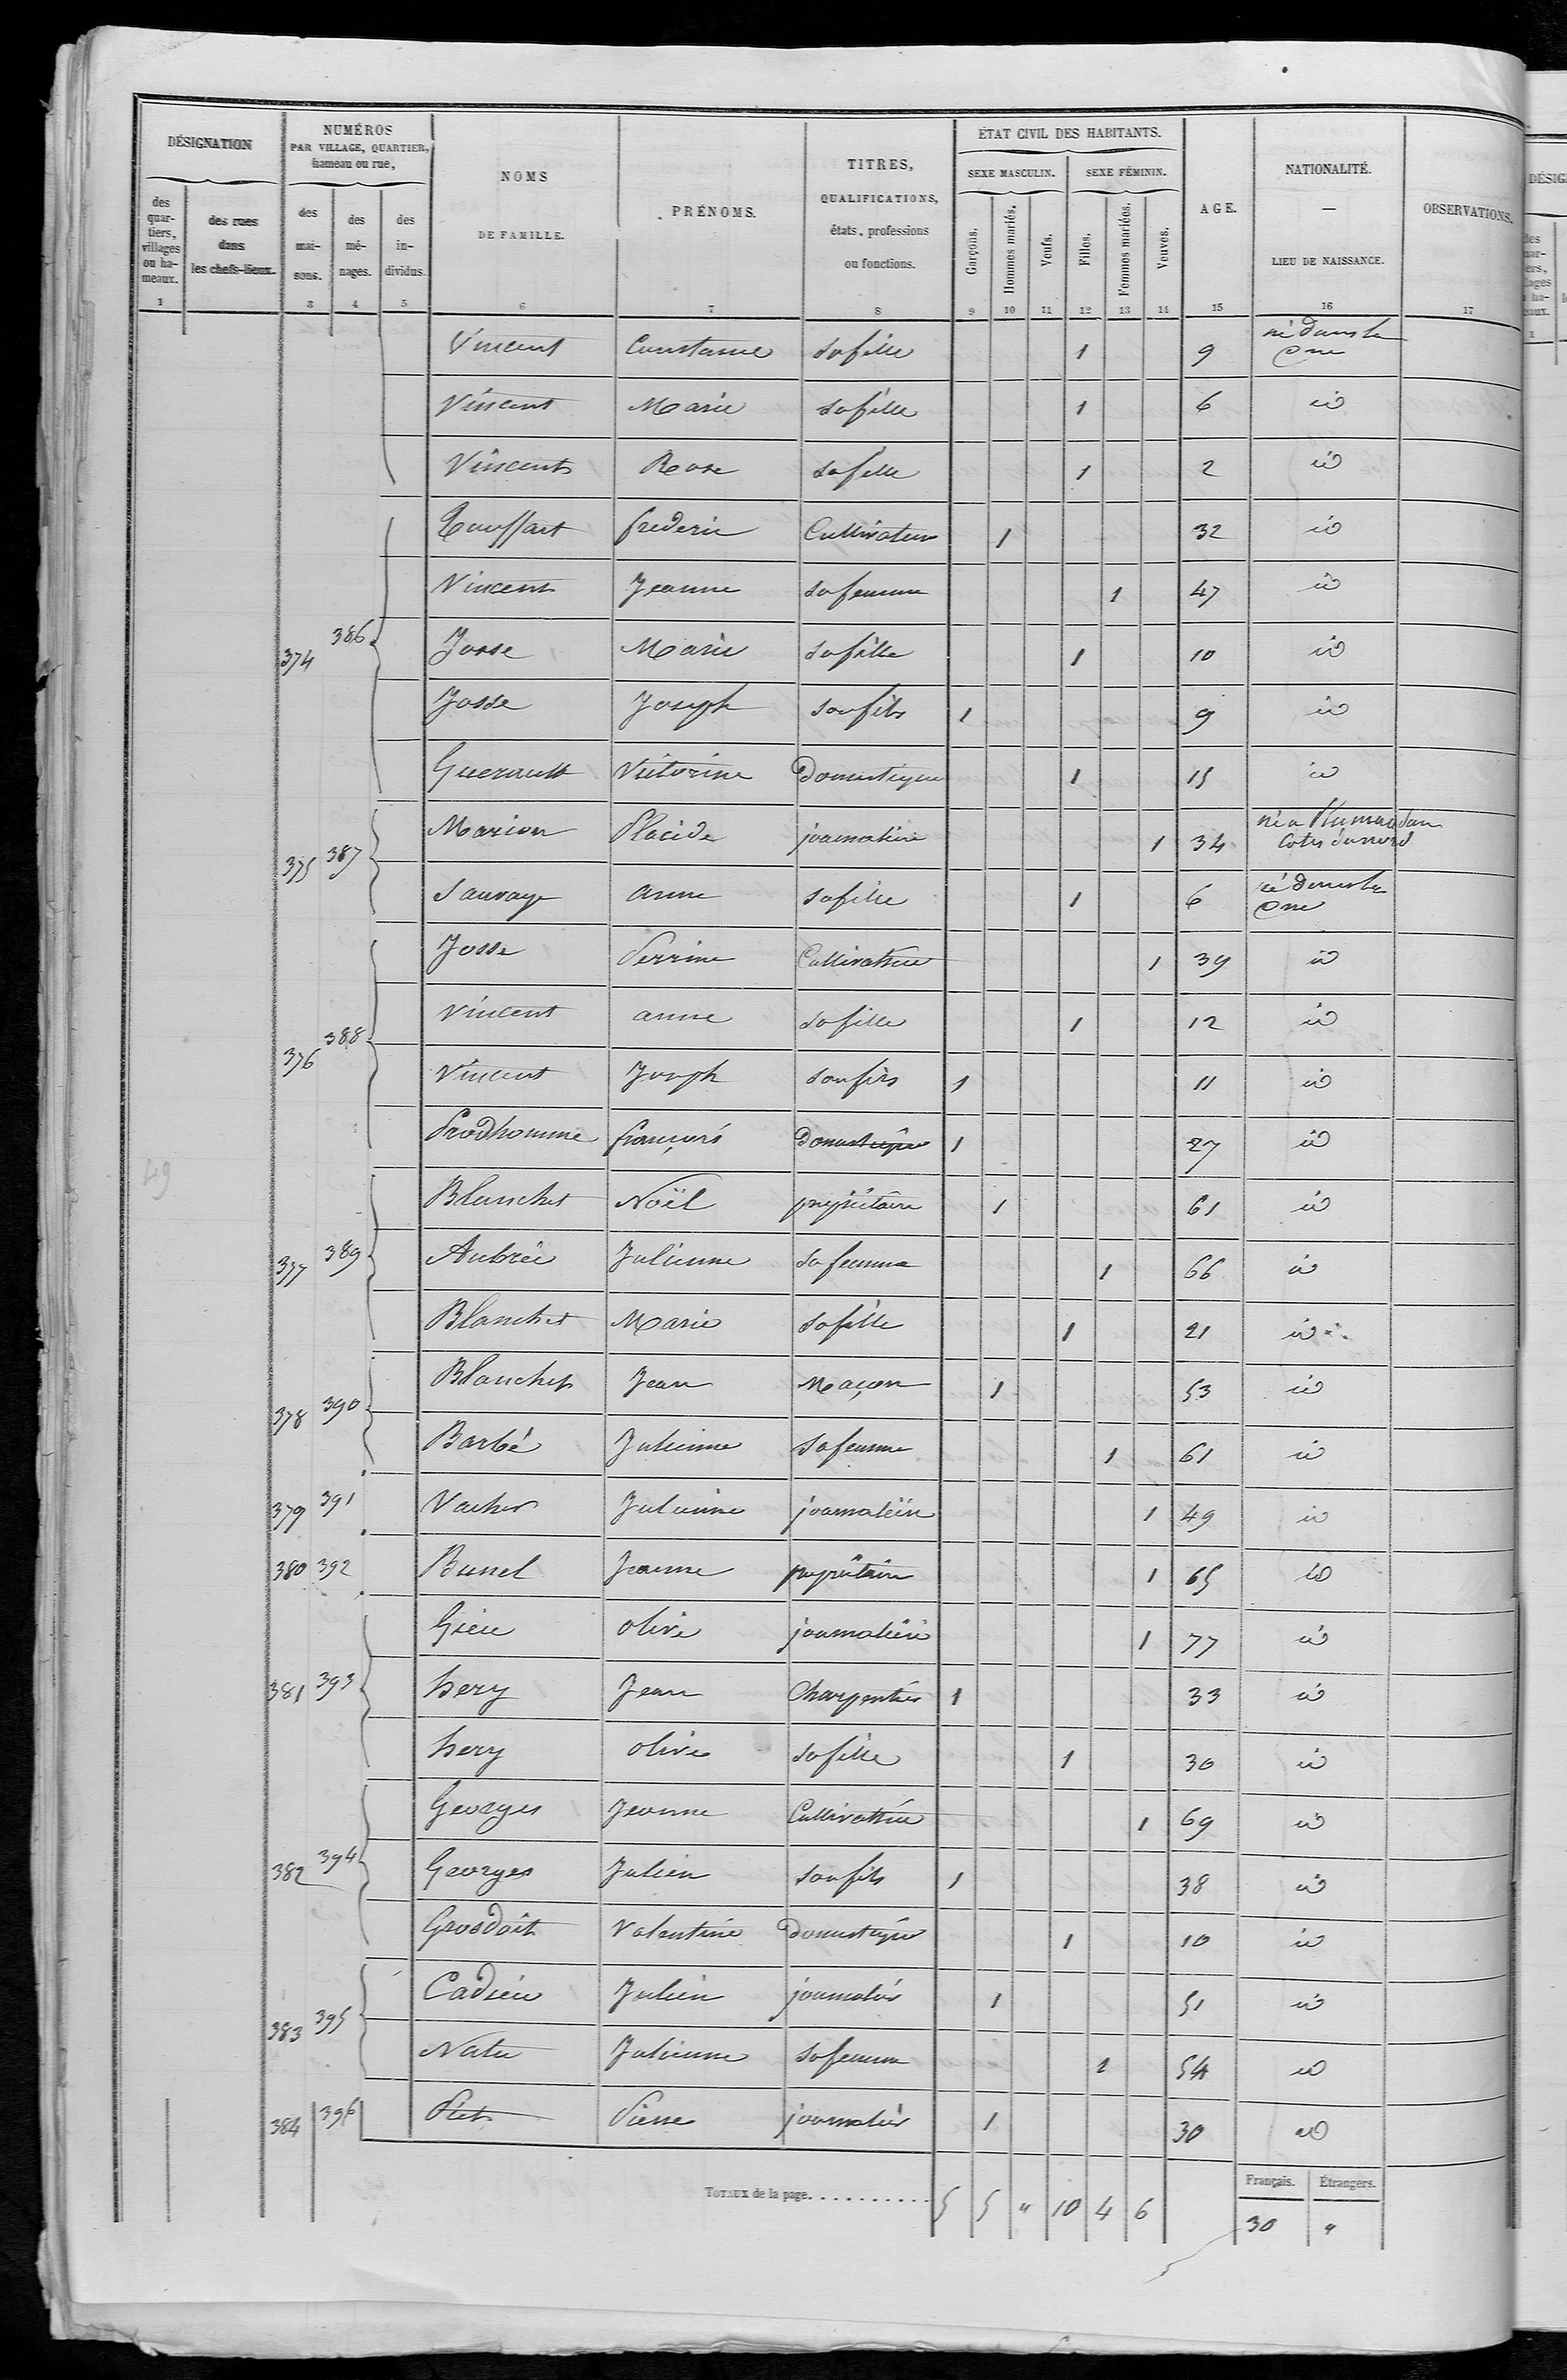 DÉSIGNATION
NUMÉROS
PAR VILLAGE, QUARTIER,
hameau ou rue,
NOMS
DE FAMILLE.
PRÉNOMS.
TITRES,
QUALIFICATIONS,
états, professions
ou fonctions.
ÉTAT CIVIL DES HABITANTS.
SEXE MASCULIN. SEXE FÉMININ.
AGE.
NATIONALITÉ.
—
LIEU DE NAISSANCE.
OBSERVATIONS.
des quar-tiers, villages ou ha-meaux.
des rues dans les chefs-lieux.
des mai-sons.
des mé-nages.
des in-dividus.
Garçons. Hommes mariés. Veufs. Filles. Femmes mariées. Veuves.
1 3 4 5 6 7 8 9 10 11 12 13 14 15 16 17
Vincent Constance sa fille 1 9 né dans la Cne
Vincent Marie sa fille 1 6 id
Vincent Rose sa fille 1 2 id
frederic Cultivateur 1 32 id
Vincent Jeanne sa femme 1 47 id
374 386 Josse Marie sa fille 1 10 id
Josse Joseph son fils 1 9 id
Guerault Victorine Domestique 1 15 id
375 387 Marion Placide journalière 1 34 né a Plumaudan Cotes du nord
Sauvage anne sa fille 1 6 né dans la Cne
Josse Perrine Cultivatrice 1 39 id
Vincent anne sa fille 1 12 id
376 388 Vincent Joseph son fils 1 11 id
Prodhomme françois Domestique 1 27 id
49
Blanchet Noël propriétaire 1 61 id
377 389 Aubrée Julienne sa femme 1 66 id
Blanchet Marie sa fille 1 21 id
378 390 Blanchet Jean Maçon 1 53 id
Barbé Julienne sa femme 1 61 id
379 391 Vacher Julienne journalière 1 49 id
380 392 Bunel Jeanne propriétaire 1 65 id
olive journalière 1 77 id
381 393 hery Jean Charpentier 1 33 id
hery olive sa fille 1 30 id
Georges Jeanne Cultivatrice 1 69 id
382 394 Georges Julien son fils 1 38 id
Grosdoit Valentine Domestique 1 10 id
383 395 Cadieu Julien journalier 1 51 id
Natu Julienne sa femme 1 54 id
384 396 Piet Pierre journalier 1 30 id
TOTAUX de la page........... 5 5 " 10 4 6
Français. Étrangers.
30 "